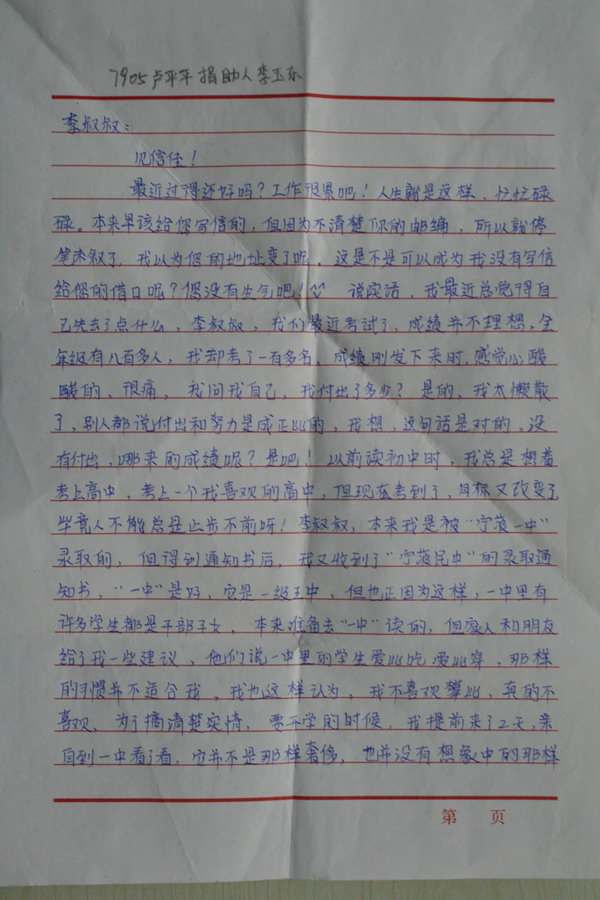 7905卢平平 捐助人李玉东
李叔叔：
见信任！
最近过得还好吗？工作很累吧！人生就是这样，忙忙碌
碌。本来早该给您写信的，但因为不清楚你的邮编，所以就停
笔未叙了，我以为您的地址变了呢，这是不是可以成为我没有写信
给您的借口呢？您没有生气吧！说实话，我最近总觉得自
己失去了点什么，李叔叔，我们最近考试了，成绩并不理想，全
年级有八百多人，我却考了一百多名，成绩刚发下来时，感觉心酸
酸的、很痛，我问我自己，我付出了多少？是的，我太懒散
了，别人都说付出和努力是成正比的，我想，这句话是对的，没
有付出，哪来的成绩呢？是吧！以前读初中时，我总是想着
考上高中，考上一个我喜欢的高中，但现在考到了，目标又改变了
毕竟人不能总是止步不前呀！李叔叔，本来我是被“宁蒗一中”
录取的，但得到通知书后，我又收到了“宁蒗民中”的录取通
知书，“一中”是好，它是一级王中，但也正因为这样，一中里有
许多学生都是干部子女，本来准备去“一中”读的，但家人和朋友
给了我一些建议，他们说一中里的学生爱比吃爱比穿，那样
的习惯并不适合我，我也这样认为，我不喜欢攀比，真的不
喜欢，为了搞清楚实情，要开学的时候，我提前来了2天，亲
自到一中看了看，它并不是那样奢侈，也并没有想象中的那样
第 页